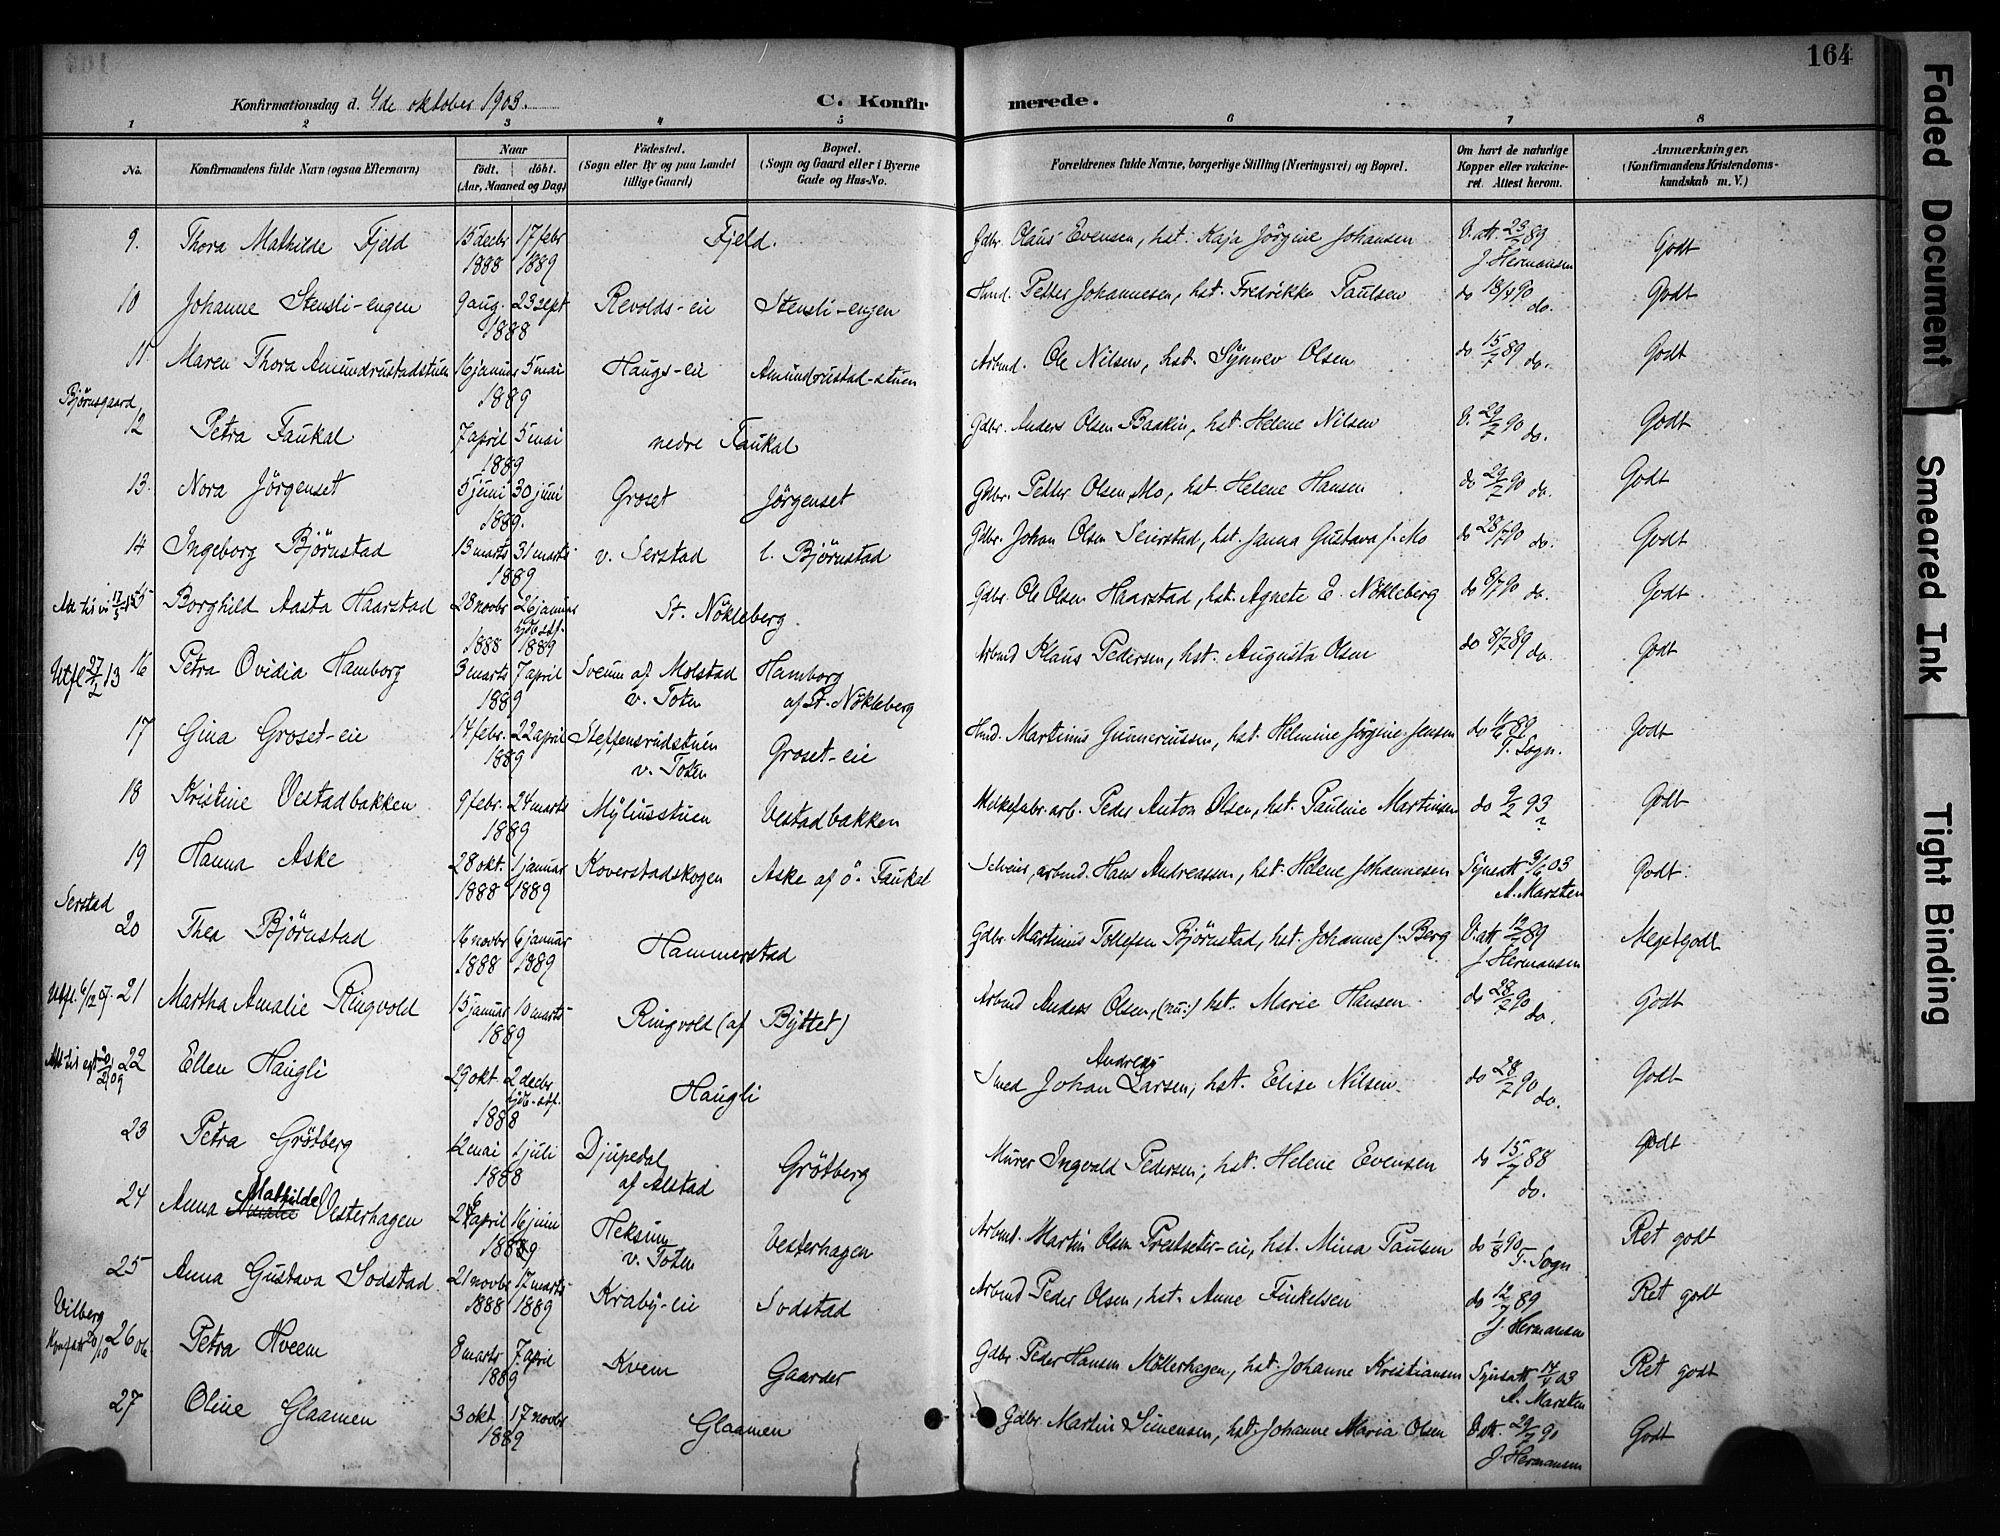 164
Konfirmationsdag d. 4de oktober 1903. C. Konfirmerede.
1 2 3 4 5 6 7 8
No. Konfirmandens fulde Navn (ogsaa Efternavn) Naar födt. döbt. (Aar, Maaned og Dag) Födested. (Sogn eller By og paa Landet tillige Gaard) Bopæl. (Sogn og Gaard eller i Byerne Gade og Hus-No. Forældrenes fulde Navne, borgerlige Stilling (Næringsvei) og Bopæl. Om havt de naturlige Kopper eller vakcineret. Attest herom. Anmærkninger. (Konfirmandens Kristendomskundskab m. V.)
9. Thora Mathilde Fjeld 15 decbr 1888 17 febr 1889 Fjeld. Gdbr. Olaus Evensen, hst. Kaja Jörgine Johansen V. att. 23/7 89 J. Hermansen Godt
10 Johanne Stensli-engen 9 aug. 23 sept 1888 Revolds-eie Stensli-engen Hmd. Petter Johannesen, hst. Fredrikke Paulsen do 18/7 90 do. Godt
11 Maren Thora Amundrustadstuen 16 januar 5 mai 1889 Haugs-eie Amundrustad-stuen Arbmd. Ole Nilsen, hst. Synnev Olsen do 15/7 89 do. Godt
Björnsgaard
12 Petra Faukal 7 april 5 mai 1889 nedre Faukal Gdbr. Anders Olsen Baakin, hst. Helene Nilsen V. 29/7 90 do. Godt
13. Nora Jörgenset 5 juni 30 juni 1889. Groset Jörgenset Gdbr. Petter Olsen Mo, hst. Helene Hansen do 29/7 90 do. Godt
14 Ingeborg Björnstad 13 marts 31 marts 1889 v. Serstad l. Björnstad Gdbr. Johan Olsen Seierstad, hst. Janna Gustava f. Mo do 28/7 90 do. Godt
15 Borghild Aasta Haarstad 28 novbr 1888 26 januar 1889 St. Nökleberg. Gdbr. Ole Olsen Haarstad, hst. Agnete E. Nökleberg do 8/7 90 do. Godt
Utfl 27/2 13 16 Petra Ovidia Hamborg 3 marts 7 april 1889 Sveum af Molstad v. Toten Hamborg af St. Nökleberg Arbmd Klaus Pedersen, hst. Augusta Olsen do 8/7 89 do. Godt
17 Gina Groset-eie 14 febr. 22 april 1889 Steffensrudstuen v. Toten Groset-eie Hmd. Martinus Gunneriussen, hst. Helmine Jörgine Jensen do 89 T. Sogn. Godt
18 Kristine Vestadbakken 9 febr. 24 marts 1889 Myliusstuen Vestadbakken Melkefabr. arb. Peder Anton Olsen, hst. Pauline Martinsen do 9/2 93 ? Godt
19 Hanna Aske 28 okt. 1888 1 januar 1889 Koverstadskogen Aske af ö. Faukal Selveier, arbmd. Hans Andreassen, hst. Helene Johannesen Synsatt 9/6 03 A. Marsten Godt.
Serstad
20 Thea Björnstad 16 novbr 1888 6 januar 1889 Hammerstad Gdbr. Martinus Tollefsen Björnstad, hst. Johanne f. Berg V. att 12/7 89 J. Hermansen Megetgodt
Utfl. 6/12 07. 21 Martha Amalie Ringvold 15 januar 10 marts 1889 Ringvold (af Byttet) Arbmd Anders Olsen, (nu:) hst. Marie Hansen do 28/7 90 do. Godt
22 Ellen Haugli 29 okt 2 decbr 1888 Haugli Smed Johan Andreas Larsen, hst. Elise Nilsen do 28/7 90 do. Godt
23 Petra Grötberg 12 mai 1 juli 1888 Djupedal af Alstad Grötberg Murer Ingvald Pedersen, hst. Helene Evensen do 15/7 88 do. Godt
24 Anna Mathilde Vesterhagen april 16 juni 1889 Heksum v. Toten Vesterhagen Arbmd. Martin Olsen Prestseter-eie, hst. Mina Paulsen do 1/8 90 T. Sogn Ret godt
25 Anna Gustava Sodstad 21 novbr 1888 17 marts 1889 Kraby-eie Sodstad Arbmd Peder Olsen, hst. Anne Finkelsen do 12/7 89 J. Hermansen Ret godt
Vilberg
Konf att 20/10 06. 26 Petra Hveem 8 marts 7 april 1889 Kvem Gaarder Gdbr. Peder Hansen Möllerhagen, hst. Johanne Kristiansen Synsatt 14/4 03 A. Marsten Ret godt
27 Oline Glaamen 3 okt 17 novbr 1889 Glaamen Gdbr Martin Simensen, hst. Johanne Maria Olsen V. att. 29/7 90 J. Hermansen Godt
Faded Document
Smeared Ink
Tight Binding